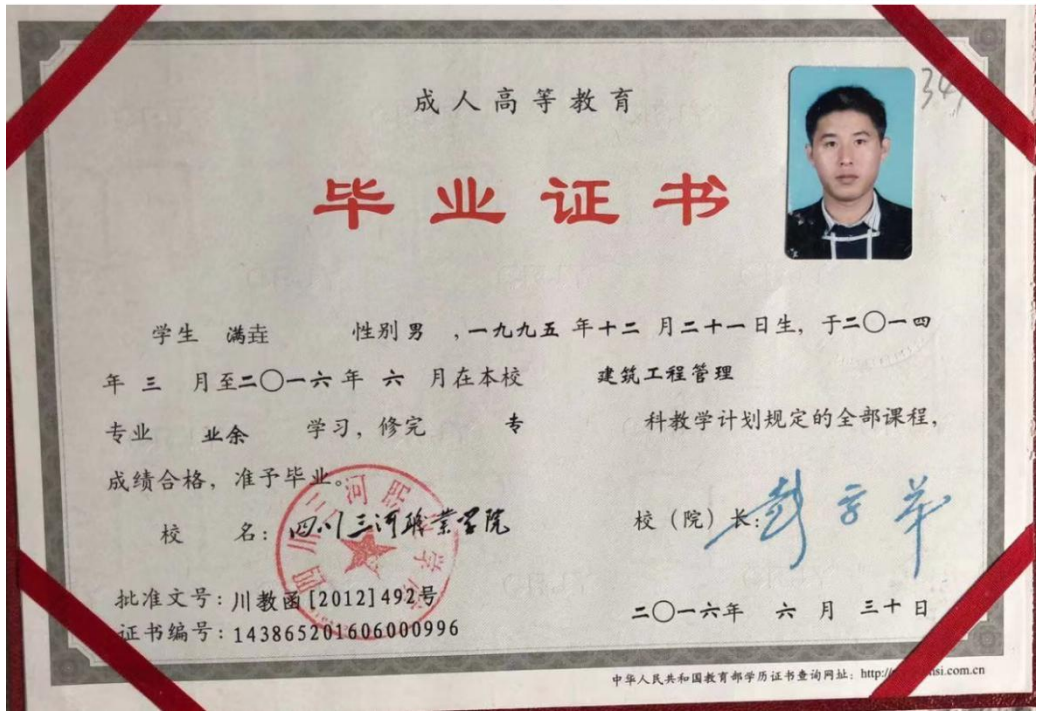 成人高等教育
34
毕业证书
学生 满垚 性别 男 ,一九九五 年十二 月二十一日生,于二〇一四
年 三 月至二〇一六年 六 月在本校 建筑工程管理
专业 业余 学习,修完 专 科教学计划规定的全部课程,
成绩合格,准予毕业。
校 名:四川三河职業学院
校(院)长:
批准文号:川教函[2012]492号
二〇一六年 六 月 三十日
证书编号:143865201606000996
中华人民共和国教育部学历证书查询网址:http://si.com.cn